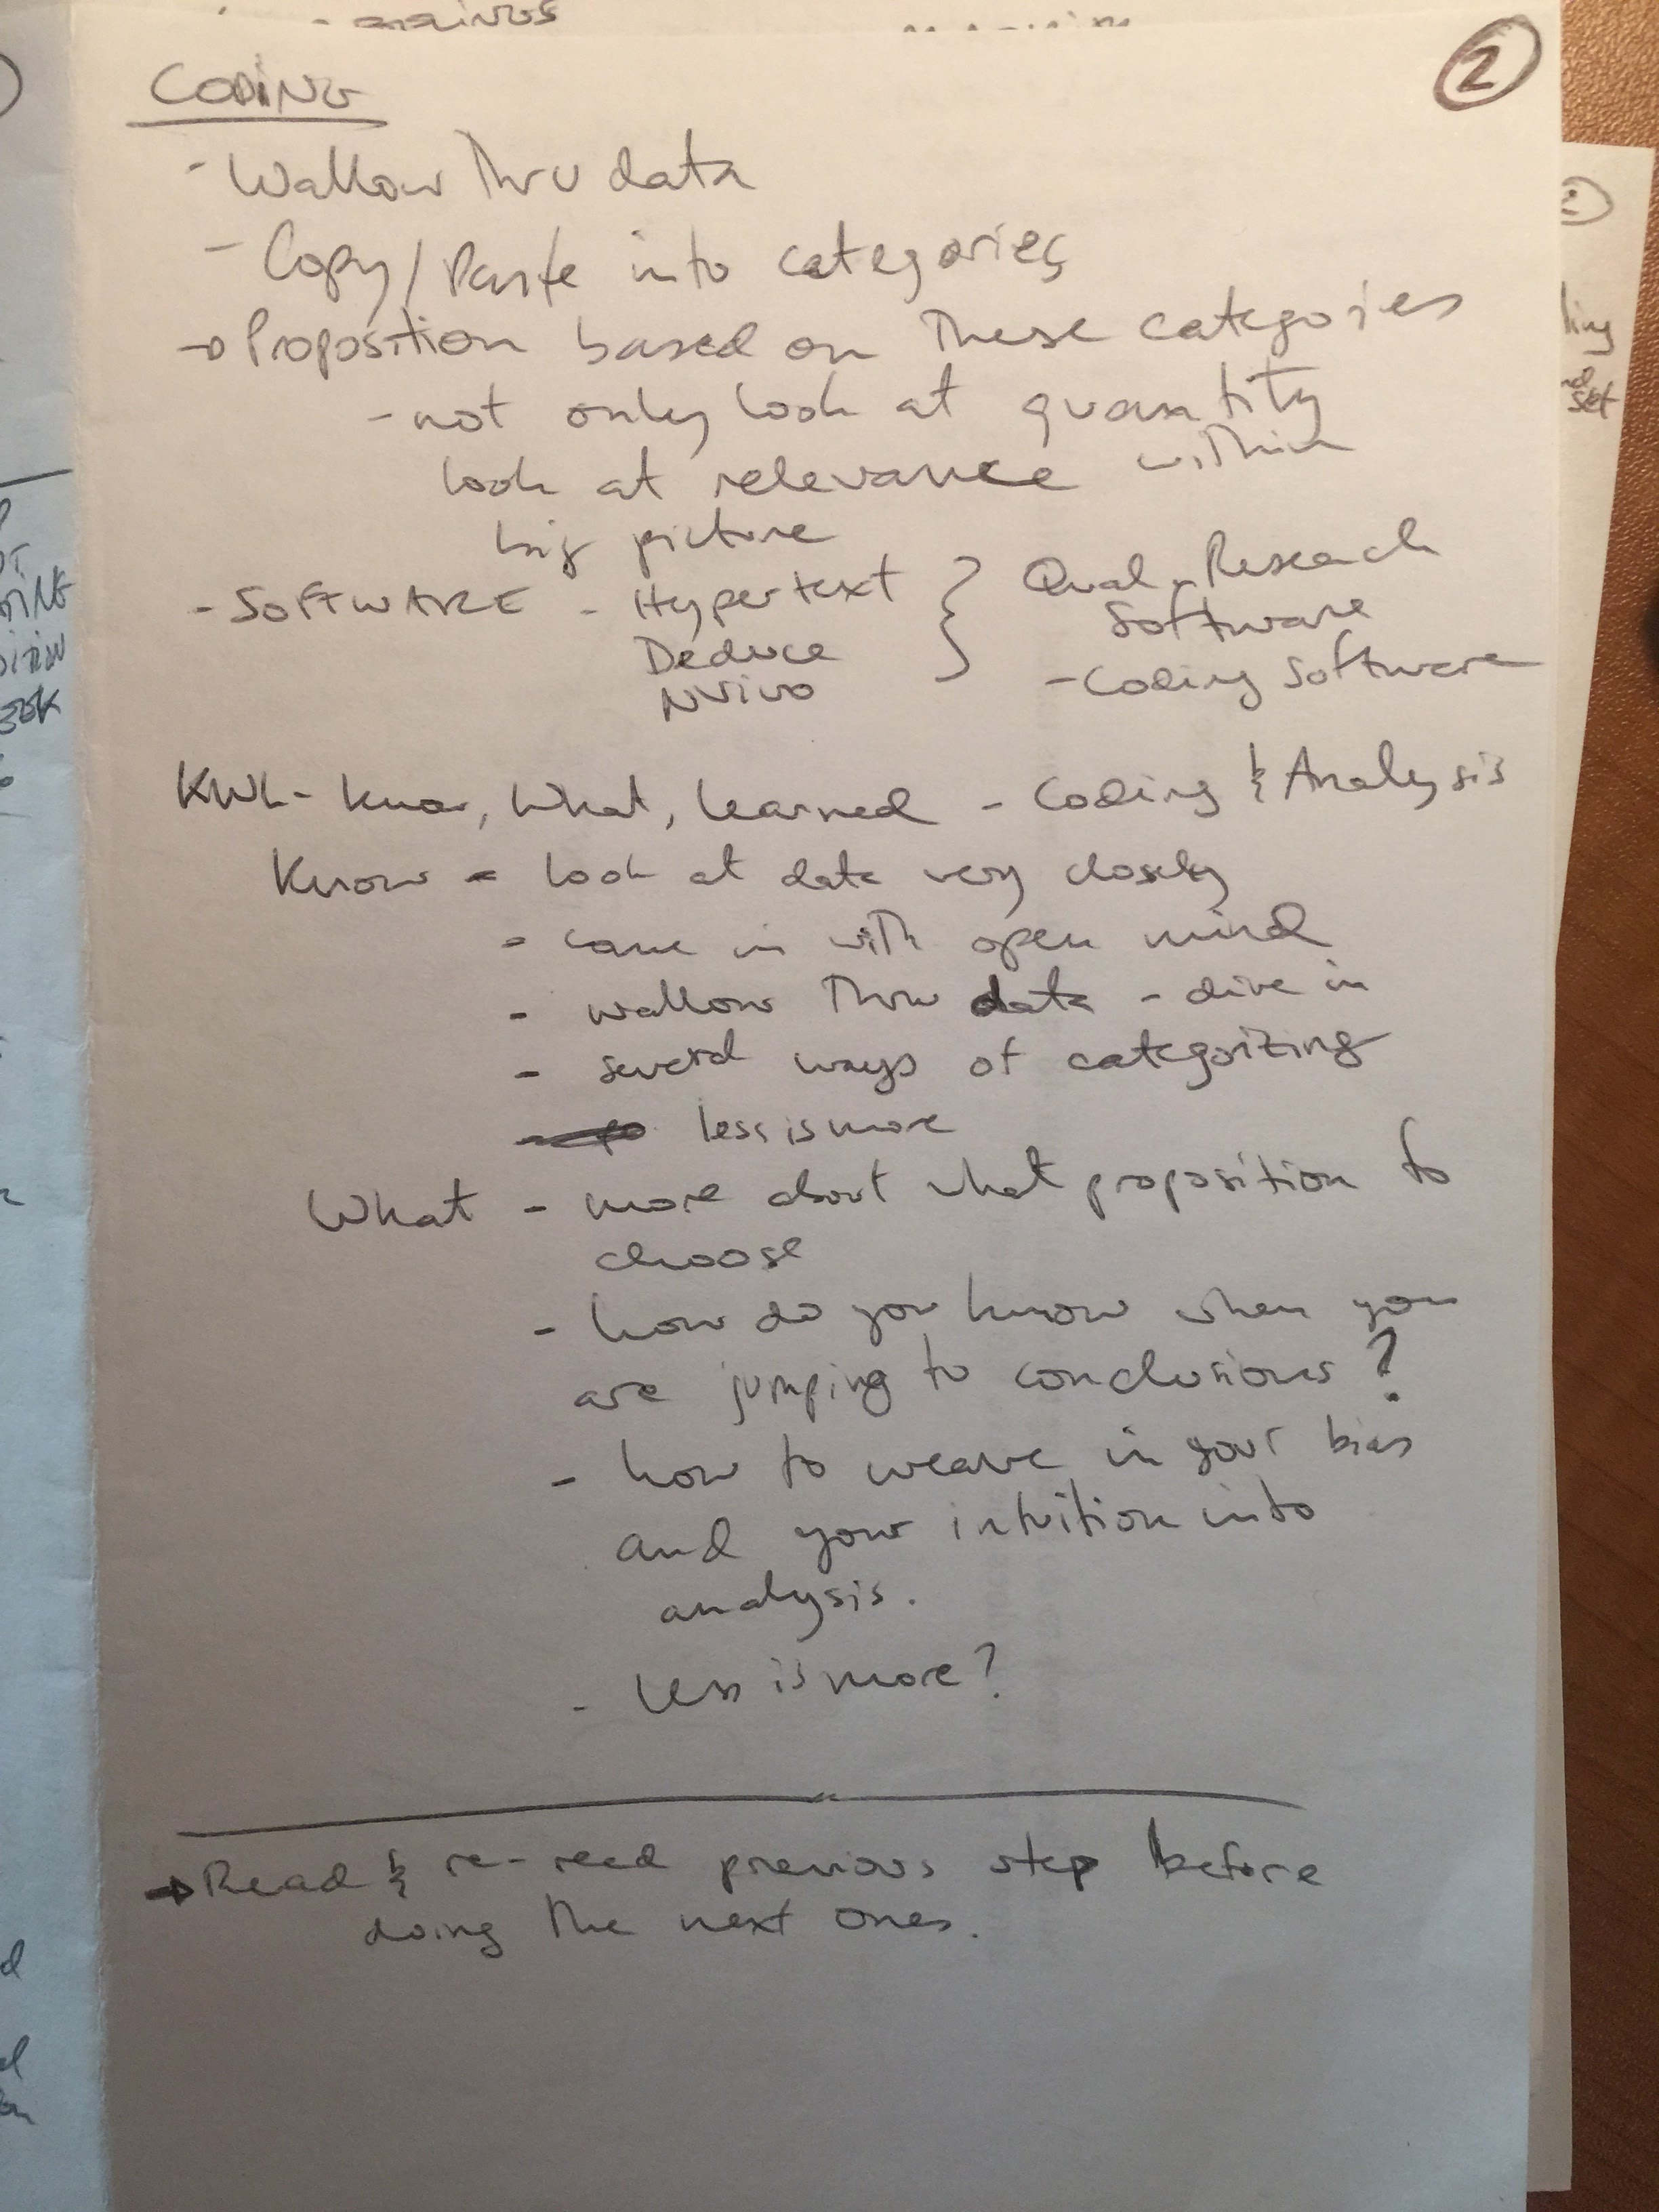 CODING
②
- Wallow Thru data
- Copy/Paste into categories
→ Proposition based on These categories
- not only look at quantity
look at relevance within
big picture
- SOFTWARE - Hypertext } Qual. Research
Deduce Software
NVivo - Coding Software
KWL - know, What, learned - Coding & Analysis
Know - look at data very closely
- came in with open mind
- wallow Thru data - dive in
- several ways of categorizing
less is more
What - more about what proposition to
choose
- how do you know when you
are jumping to conclusions?
- how to weave in your bias
and your intuition into
analysis.
- Less is more?
→ Read & re-read previous step before
doing The next ones.